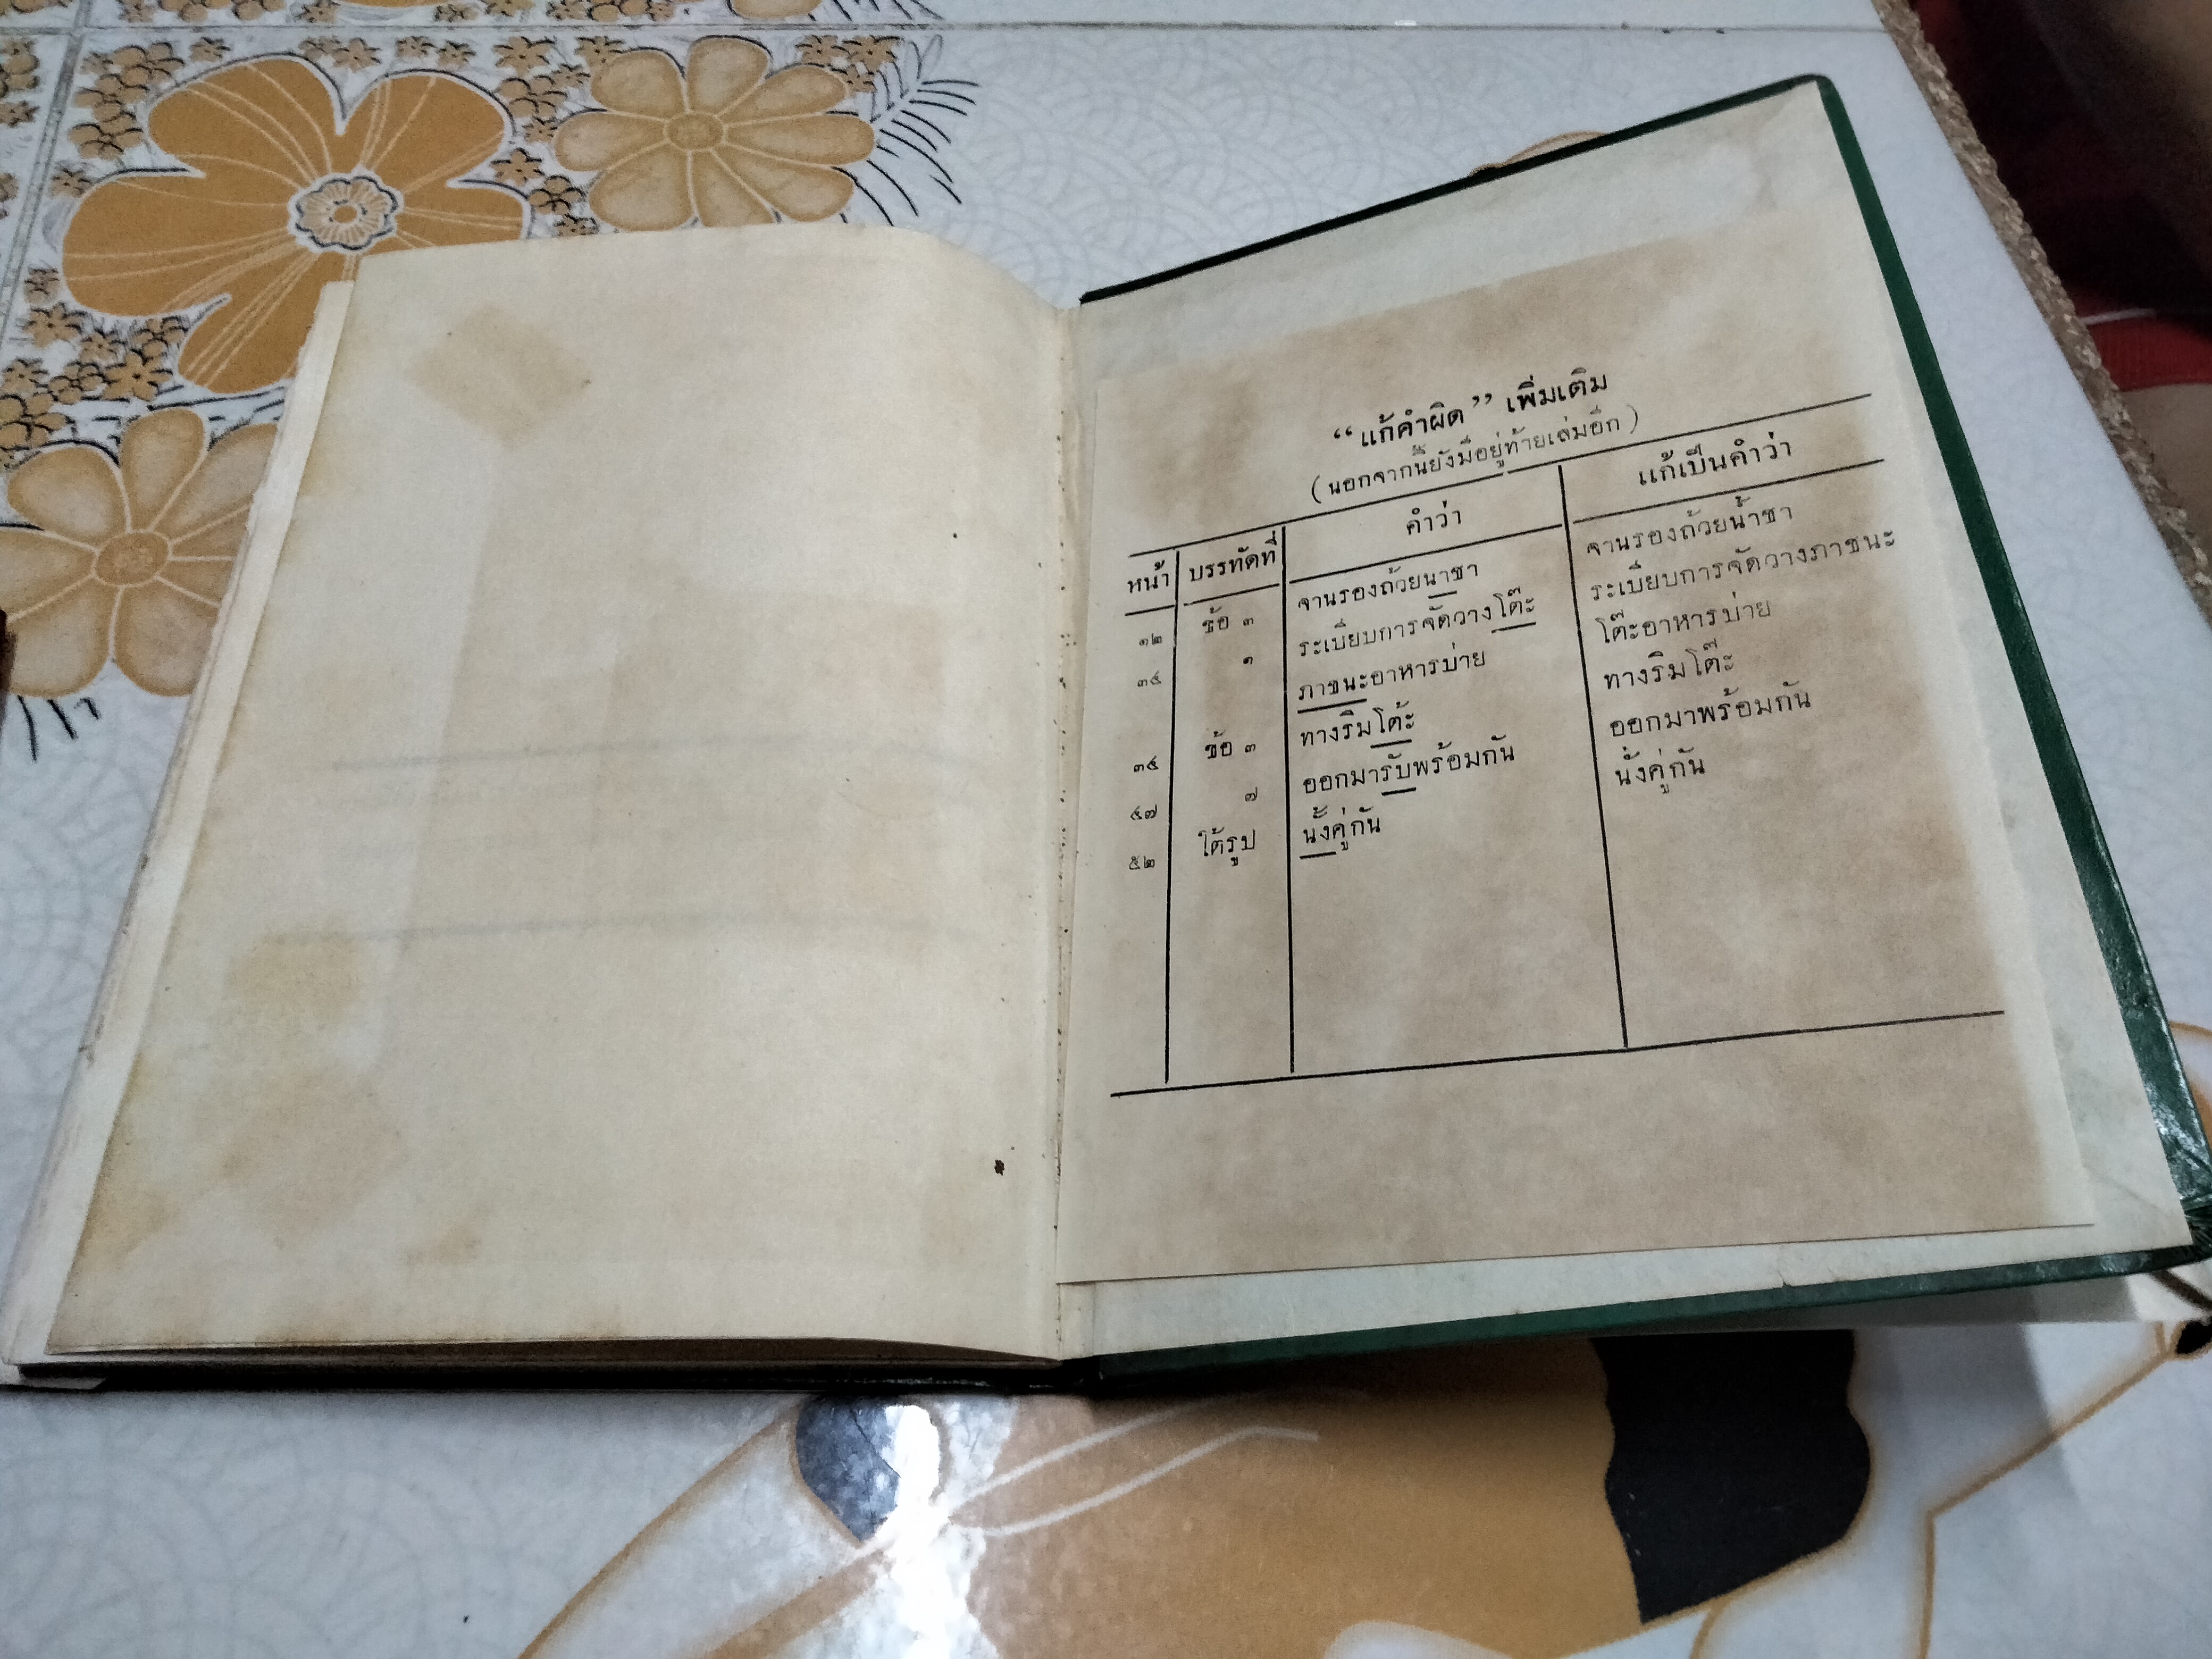 “แก้คำผิด” เพิ่มเติม
(นอกจากนี้ยังมีอยู่ท้ายเล่มอีก)
หน้า บรรทัดที่ คำว่า แก้เป็นคำว่า
๑๒ ข้อ ๓ จานรองถ้วยนาชา จานรองถ้วยน้ำชา
๓๕ ๑ ระเบียบการจัดวางโต๊ะ ระเบียบการจัดวางภาชนะ
ภาชนะอาหารบ่าย โต๊ะอาหารบ่าย
๓๕ ข้อ ๓ ทางริมโต้ะ ทางริมโต๊ะ
๔๗ ๗ ออกมารับพร้อมกัน ออกมาพร้อมกัน
๕๒ ใต้รูป นั้งคู่กัน นั่งคู่กัน